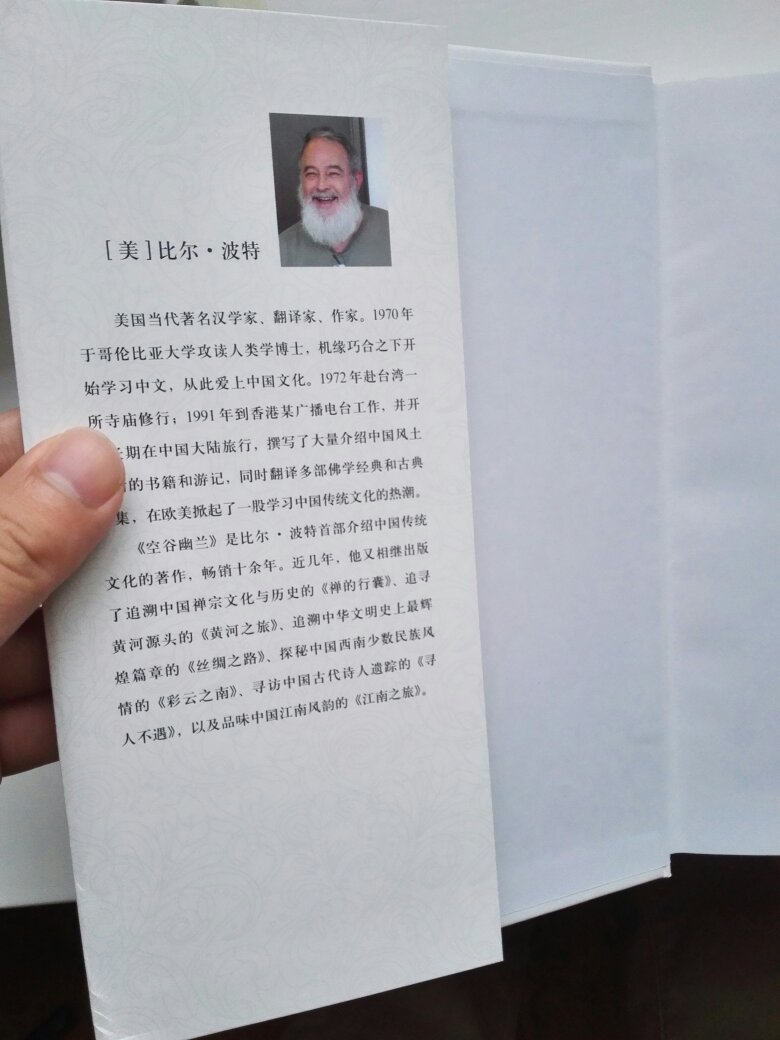 [美]比尔·波特
美国当代著名汉学家、翻译家、作家。1970年
于哥伦比亚大学攻读人类学博士，机缘巧合之下开
始学习中文，从此爱上中国文化。1972年赴台湾一
所寺庙修行；1991年到香港某广播电台工作，并开
期在中国大陆旅行，撰写了大量介绍中国风土
的书籍和游记，同时翻译多部佛学经典和古典
集，在欧美掀起了一股学习中国传统文化的热潮。
《空谷幽兰》是比尔·波特首部介绍中国传统
文化的著作，畅销十余年。近几年，他又相继出版
了追溯中国禅宗文化与历史的《禅的行囊》、追寻
黄河源头的《黄河之旅》、追溯中华文明史上最辉
煌篇章的《丝绸之路》、探秘中国西南少数民族风
情的《彩云之南》、寻访中国古代诗人遗踪的《寻
人不遇》，以及品味中国江南风韵的《江南之旅》。